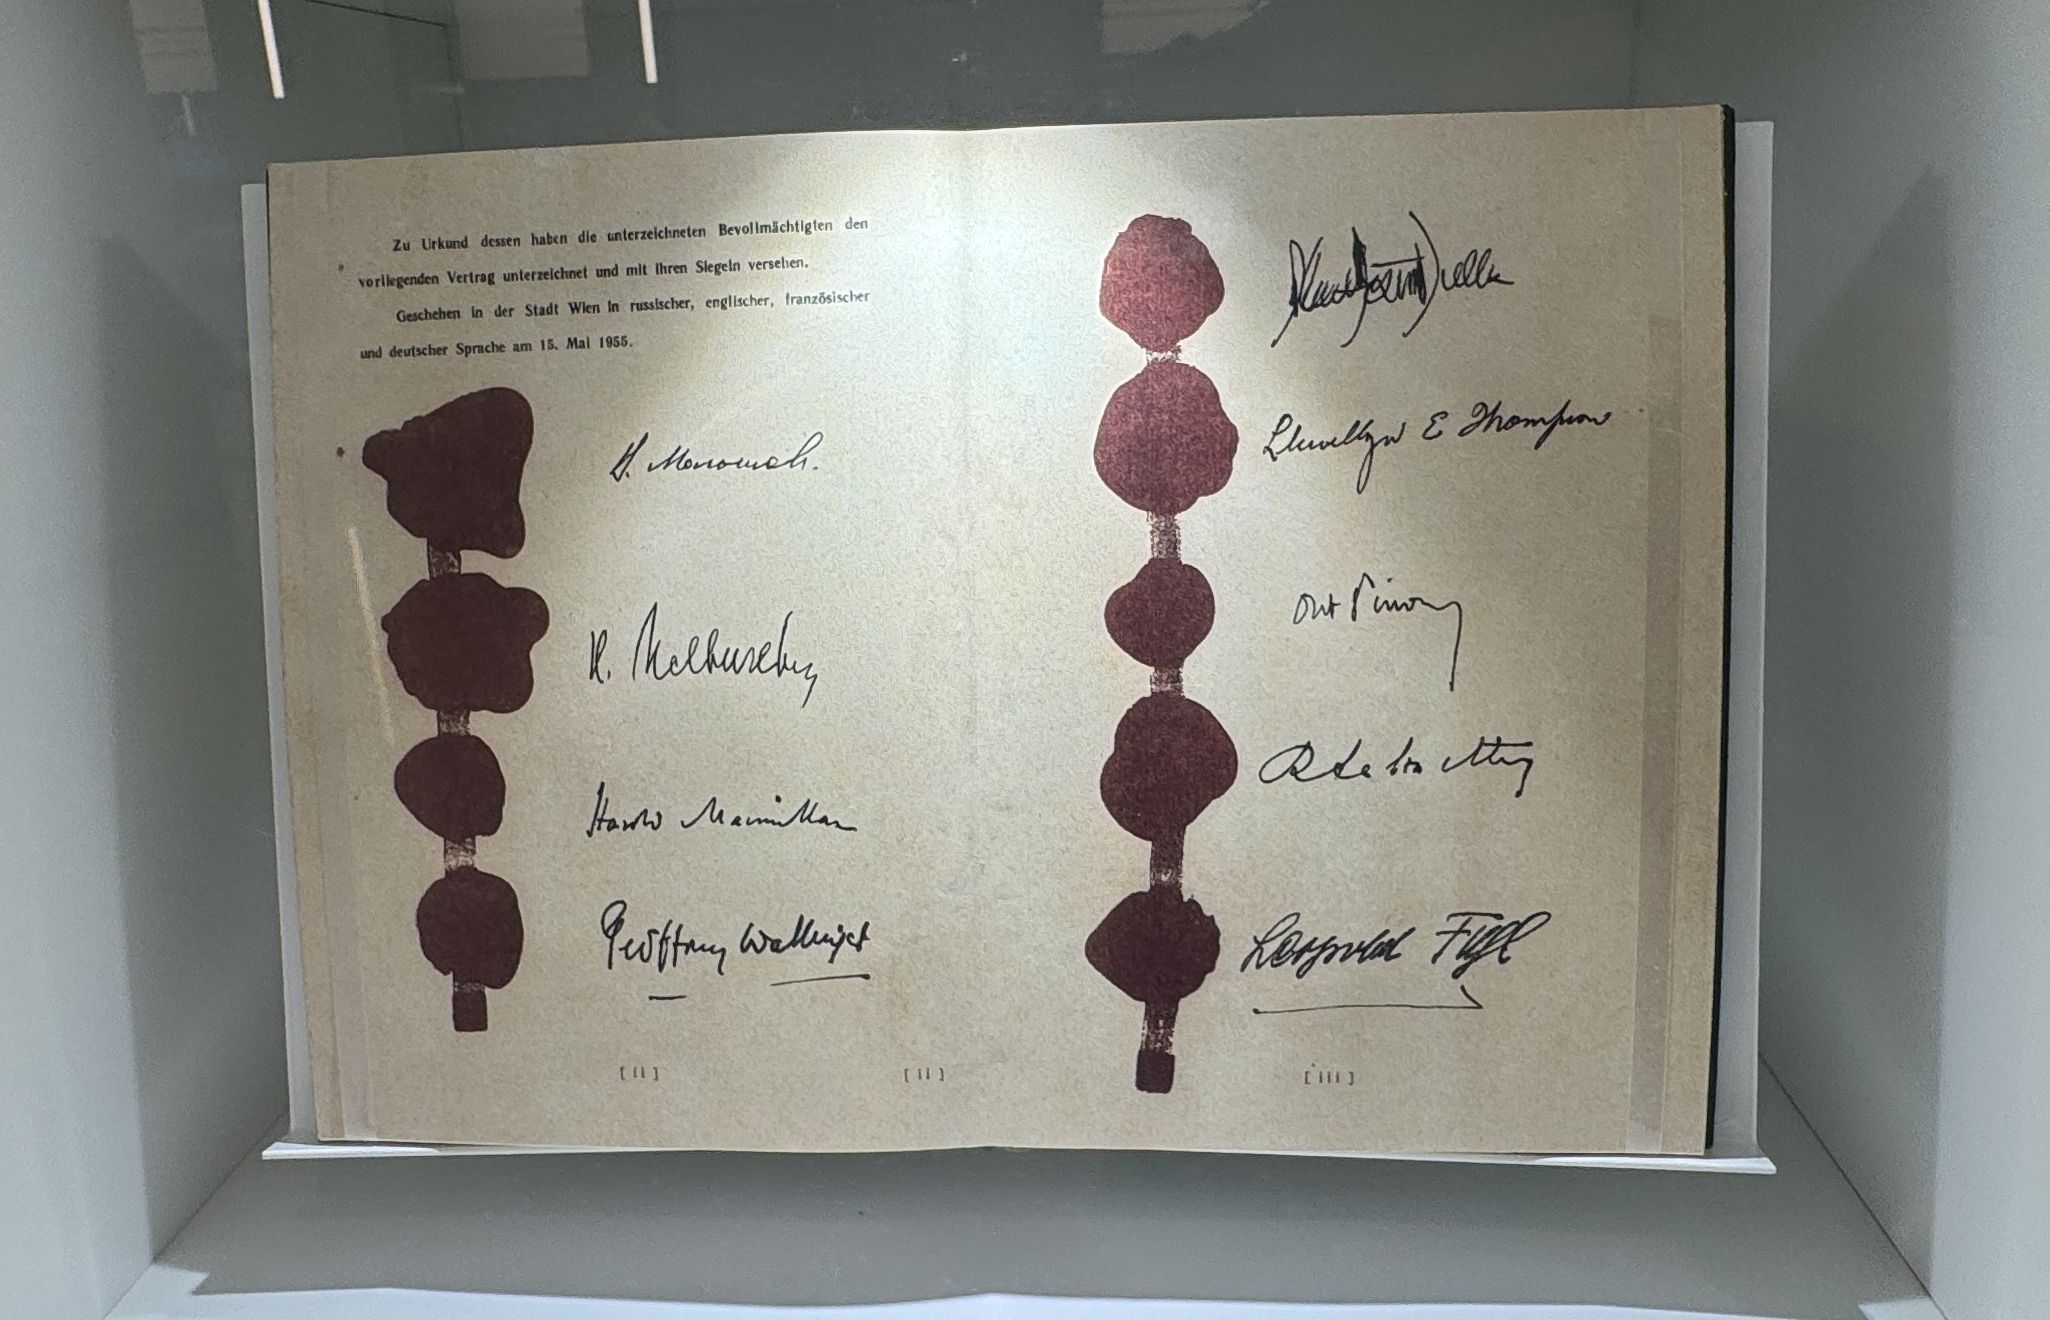 Zu Urkund dessen haben die unterzeichneten Bevollmächtigten den
vorliegenden Vertrag unterzeichnet und mit ihren Siegeln versehen.
Geschehen in der Stadt Wien in russischer, englischer, französischer
und deutscher Sprache am 15. Mai 1955.
Harold Macmillan
Geoffrey Wallinger
[ii]
[ii]
Llewellyn E Thompson
Leopold Figl
[iii]